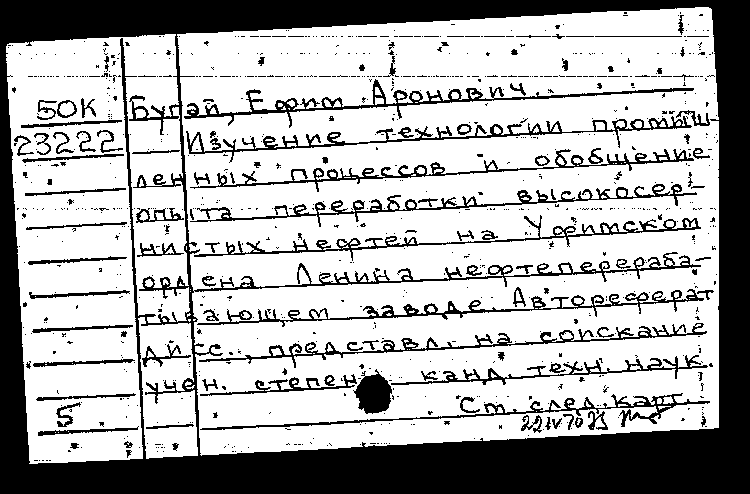 50К Бугай, Ефим Аронович.
23222 Изучение технологии промыш-
ленных процессов и обобщение
опыта переработки высокосер-
нистых нефтей на Уфимском
ордена Ленина нефтеперераба-
тывающем заводе. Автореферат
дисс., представл. на соискание
учен. степени канд. техн. наук.
5 Ст. след. карт.